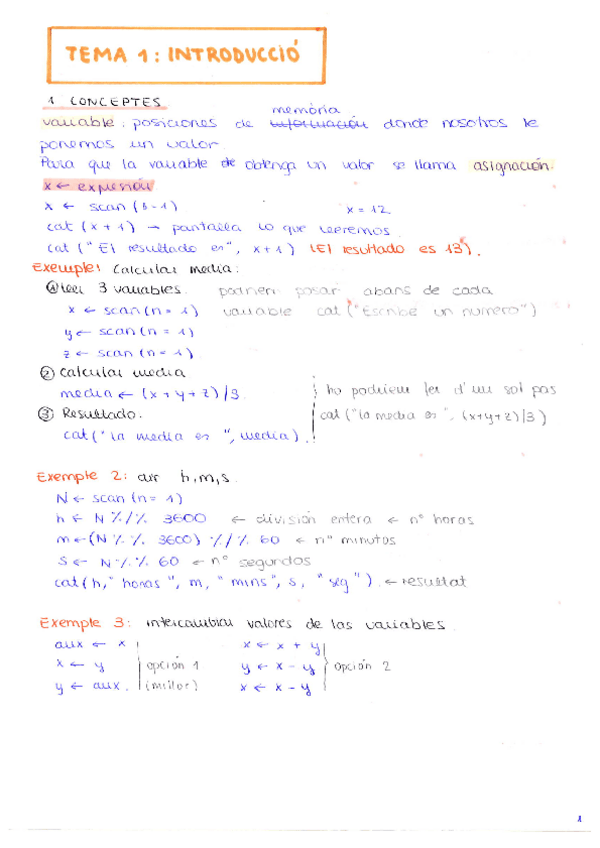 TEMA 1: INTRODUCCIÓ
1 CONCEPTES
memòria
variable: posiciones de información donde nosotros le
ponemos un valor.
Para que la variable de obtenga un valor se llama asignación.
x ← expresión
x ← scan (n=1) x = 12
cat (x + 1) → pantalla lo que leeremos
cat (" El resultado es", x + 1) (El resultado es 13).
Exemple: Calcular media:
① leer 3 variables. podrien posar abans de cada
x ← scan (n = 1) variable cat ("Escribe un numero")
y ← scan (n = 1)
z ← scan (n = 1)
② calcular media
media ← (x + y + z) / 3 ho podriem fer d'un sol pas
③ Resultado. cat ("la media es ", (x+y+z)/3)
cat ("la media es ", media)
Exemple 2: dir h, m, s.
N ← scan (n = 1)
h ← N %/% 3600 ← división entera ← nº horas
m ← (N %% 3600) %/% 60 ← nº minutos
S ← N %% 60 ← nº segundos
cat (h, " horas ", m, " mins ", s, " seg ") ← resultat
Exemple 3: intercambiar valores de las variables.
aux ← x x ← x + y
x ← y opción 1 y ← x - y opción 2
y ← aux. (millor) x ← x - y
1